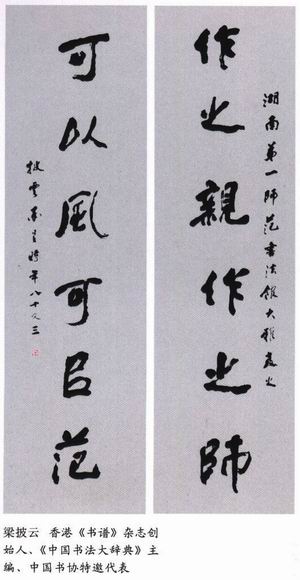 湖南第一師范書法館大雅
作之親作之師
可以風可㠯范
披雲 時年八十又三
梁披云 香港《书谱》杂志创
始人、《中国书法大辞典》主
编、中国书协特邀代表